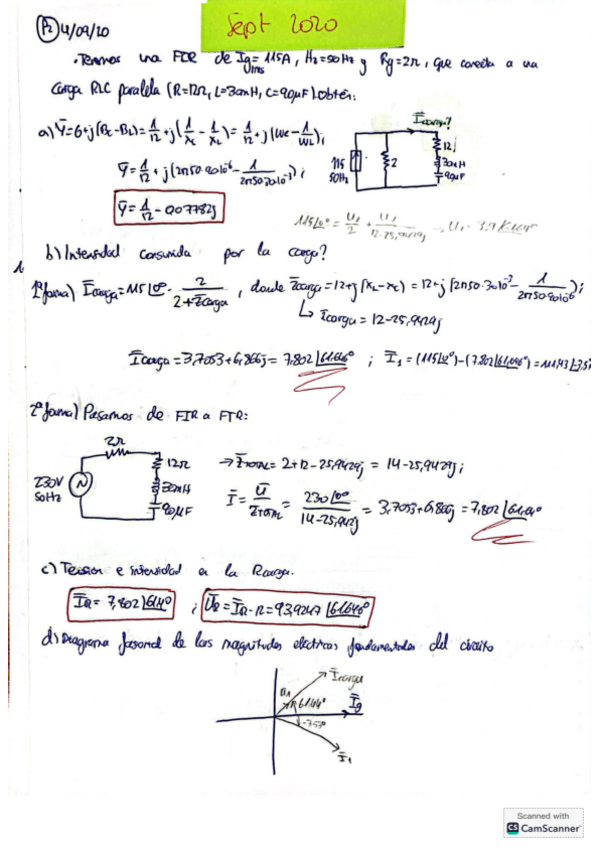 Sept 2020
P2 4/09/20
· Tenemos una FIR de Ig rms = 115A, Hz=50Hz y Rg=2Ω, que conecta a una
carga RLC paralela (R=12Ω, L=30mH, C=90μF). Obtén:
a) Ȳ=G+j(Bc-BL)= 1/12 + j(1/Xc - 1/XL)= 1/12 + j(wc - 1/wL);
Ȳ= 1/12 + j(2π50·90·10⁻⁶ - 1/2π50·30·10⁻³);
Ȳ= 1/12 - 0,07782j
Ī carga?
115
50Hz
2
12
30mH
90μF
115∠0° = U1/2 + U1/12-25,9429j
b) Intensidad consumida por la carga?
1ªforma) Īcarga=115∠0° · 2/2+Z̄carga, donde Z̄carga=12+j(XL-Xc)=12+j(2π50·30·10⁻³ - 1/2π50·90·10⁻⁶);
↳ Z̄carga=12-25,9429j
Īcarga=3,7053+6,866j=7,802∠61,646° ; Ī1=(115∠0°)-(7,802∠61,646°)=111,43∠-3,5
2ªforma) Pasamos de FIR a FTR:
2Ω
230V
50Hz
12Ω
30mH
90μF
→Z̄total=2+12-25,9429j = 14-25,9429j;
Ī= Ū/Z̄total = 230∠0°/14-25,942j = 3,7053+6,866j=7,802∠61,64°
c) Tension e intensidad en la Rcarga.
ĪR= 7,802∠61,64° ; ŪR=ĪR·R=93,9247∠61,646°
d) Diagrama fasorial de las magnitudes eléctricas fundamentales del circuito
Īcarga
61,64°
Īg
-3,53°
Ī1
Scanned with
CS CamScanner